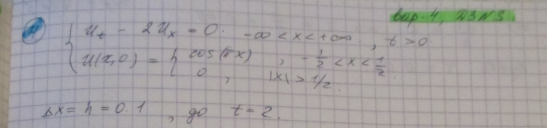 вар-4, ДЗN5.
U_t - 2U_x = 0. -∞ < x < +∞, t > 0
U(x,0) = { cos(πx), -1/2 < x < 1/2.
0, |x| > 1/2.
Δx = h = 0.1, до t = 2.